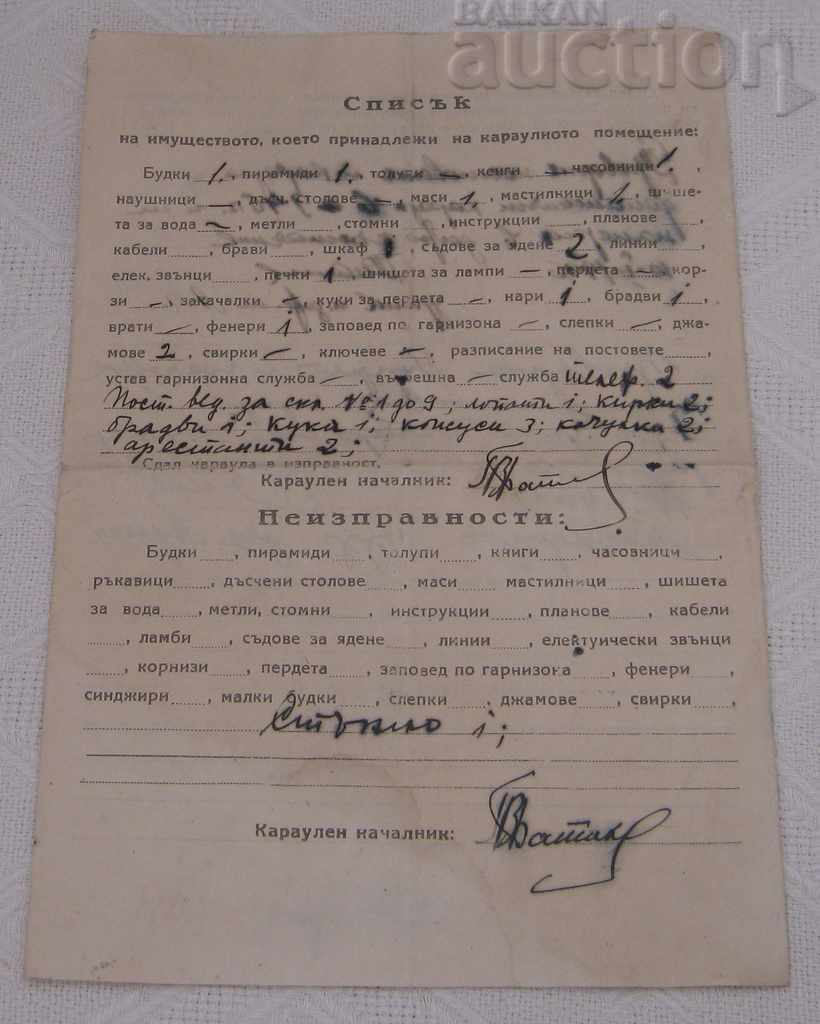 BALKAN
auction
Списък
на имуществото, което принадлежи на караулното помещение:
Будки 1, пирамиди 1, толупи —, кенги —, часовници 1,
наушници —, дъсч. столове —, маси 1, мастилници 1, шише-
та за вода —, метли, стомни, инструкции, планове,
кабели, брави, шкаф, съдове за ядене 2, линии,
елек. звънци, печки 1, шишета за лампи —, пердета —, кор-
зи —, закачалки —, куки за пердета —, нари 1, брадви 1,
врати —, фенери 1, заповед по гарнизона —, слепки —, джа-
мове 2, свирки —, ключеве —, разписание на постовете,
устав гарнизонна служба —, вътрешна — служба телеф. 2
Пост. вед. за скл. №1 до 9; лопати 1; кирки 2;
брадви 1; кука 1; конуси 3; качулки 2;
арестанти 2;
Сдал караула в изправност.
Караулен началник:
Неизправности:
Будки, пирамиди, толупи, книги, часовници,
ръкавици, дъсчени столове, маси, мастилници, шишета
за вода, метли, стомни, инструкции, планове, кабели
, ламби, съдове за ядене, линии, електуически звънци
, корнизи, пердета, заповед по гарнизона, фенери,
синджири, малки будки, слепки, джамове, свирки,
Стъкло 1;
Караулен началник: